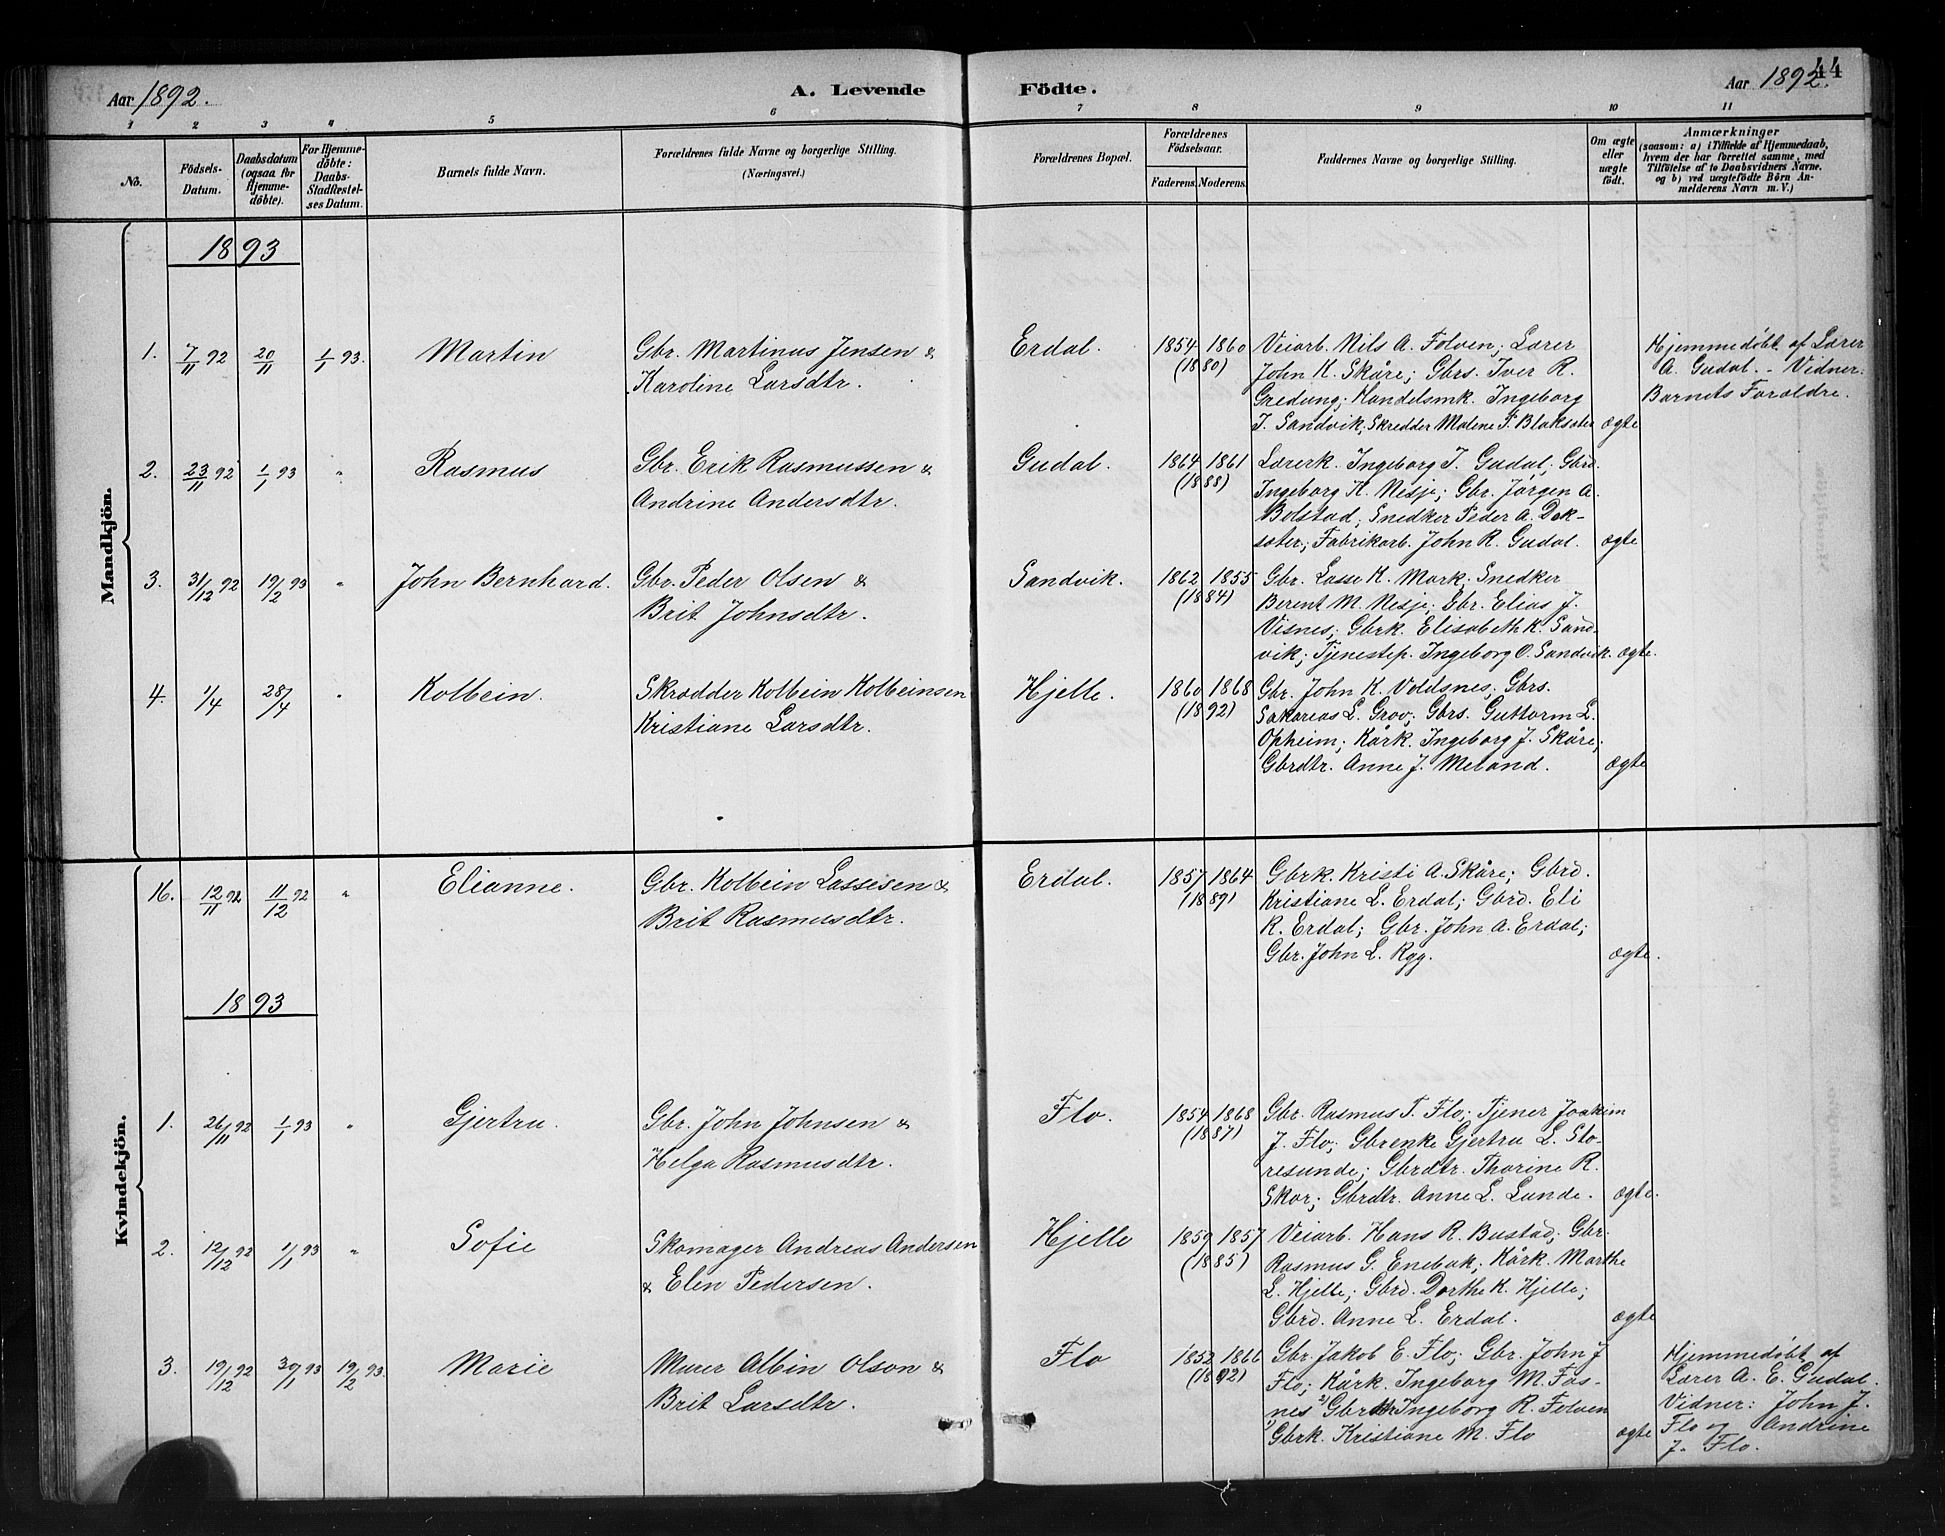 Aar 1892.
A. Levende Födte.
Aar 1892.
44
1 2 3 4 5 6 7 8 9 10 11
No.
Födsels-
Datum.
Daabsdatum
(ogsaa for
Hjemme-
döbte).
For Hjemme-
döbte:
Daabs-
Stadfæstel-
ses Datum.
Barnets fulde Navn.
Forældrenes fulde Navne og borgerlige Stilling.
(Næringsvei.)
Forældrenes Bopæl.
Forældrenes
Födselsaar.
Faderens. Moderens.
Faddernes Navne og borgerlige Stilling.
Om ægte
eller
uægte
födt.
Anmærkninger
(saasom: a) i Tilfælde af Hjemmedaab,
hvem der har forrettet samme, med
Tilföielse af to Daabsvidners Navne.
og b) ved uægtefödte Börn An-
melderens Navn m. V.)
Mandkjön.
1893
1. 7/11 92 20/11 1/1 93. Martin
Gbr. Martinus Jensen &
Karoline Larsdtr.
Erdal.
1854 1860
(1880)
Veiarb. Nils A. Folven; Lærer
John K. Skåre; Gbrs. Iver R.
Gredung; Handelsmk. Ingeborg
J. Sandvik, Skredder Malene P. Blaksæter
ægte
Hjemmedøbt af Lærer
A. Gudal. - Vidner:
Barnets Forældre.
2. 23/11 92 1/1 93 " Rasmus
Gbr. Erik Rasmussen &
Andrine Andersdtr.
Gudal.
1864 1861
(1888)
Lærerk. Ingeborg J. Gudal; Gbrd.
Ingeborg K. Nesje; Gbr. Jørgen A.
Bolstad; Snedker Peder A. Dok-
sæter; Fabrikarb. John R. Gudal.
ægte
3. 31/12 92 19/2 93 " John Bernhard.
Gbr. Peder Olsen &
Brit Johnsdtr.
Sandvik.
1862 1855
(1884)
Gbr. Lasse K. Mark; Snedker
Berent M. Nesje; Gbr. Elias J.
Visnes; Gbrk. Elisabeth K. Sand-
vik; Tjenestep. Ingeborg O. Sandvik.
ægte.
4. 1/4 28/4 " Kolbein.
Skrædder Kolbein Kolbeinsen
Kristiane Larsdtr.
Hjelle.
1860 1868
(1892)
Gbr. John K. Voldsnes; Gbrs.
Sakarias L. Grov; Gbrs. Guttorm L.
Opheim; Kårk. Ingeborg J. Skåre;
Gbrdtr. Anne J. Meland.
ægte
Kvindekjön.
16. 12/11 92 11/12 92 " Elianne.
Gbr. Kolbein Lassesen &
Brit Rasmusdtr.
Erdal.
1857 1864
(1889)
Gbrk. Kristi A. Skåre; Gbrd.
Kristiane L. Erdal; Gbrd. Eli
R. Erdal; Gbr. John A. Erdal;
Gbr. John L. Ryg.
ægte.
1893
1. 26/11 92 1/1 93 " Gjertru.
Gbr. John Johnsen &
Helga Rasmusdtr.
Flo.
1854 1868
(1887)
Gbr. Rasmus T. Flo; Tjener Joakim
J. Flo; Gbrenke Gjertru L. Sto-
resunde; Gbrdtr. Thorine R.
Skor; Gbrdtr. Anne L. Lunde.
ægte.
2. 12/12 92 1/1 93 " Sofie
Skomager Andreas Andersen
& Elen Pedersen.
Hjelle
1859 1857
(1885)
Veiarb. Hans R. Bustad; Gbr.
Rasmus G. Enebak; Kårk. Marthe
L. Hjelle; Gbrd. Dorthe K. Hjelle;
Gbrd. Anne L. Erdal.
ægte
3. 19/12 92 30/1 93 19/2 93. Marie
Murer Albin Olson &
Brit Larsdtr.
Flo
1852 1866
(1892)
Gbr. Jakob E. Flo; Gbr. John J
Flo; Kårk. Ingeborg M. Fos-
nes 2) Gbrdtr Ingeborg R. Folven
1) Gbrk. Kristiane M. Flo
ægte
Hjemmedøbt af
Lærer A. E. Gudal.
Vidner: John J.
Flo og Andrine
J. Flo.